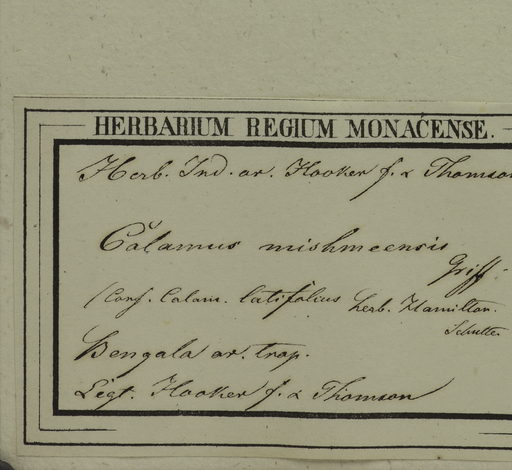 HERBARIUM REGIUM MONACENSE.
Herb. Ind. or. Hooker f. & Thomson
Calamus mishmeensis
Griff.
(Conf. Calam. latifolius herb. Hamilton.
Schulte
Bengala or. trop.
Legt. Hooker f. & Thomson